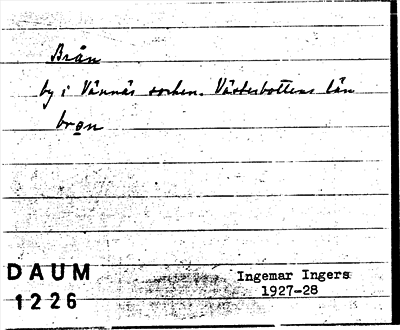 Brån
by i Vännäs socken. Västerbottens län
bron
DAUM
1226
Ingemar Ingers
1927-28